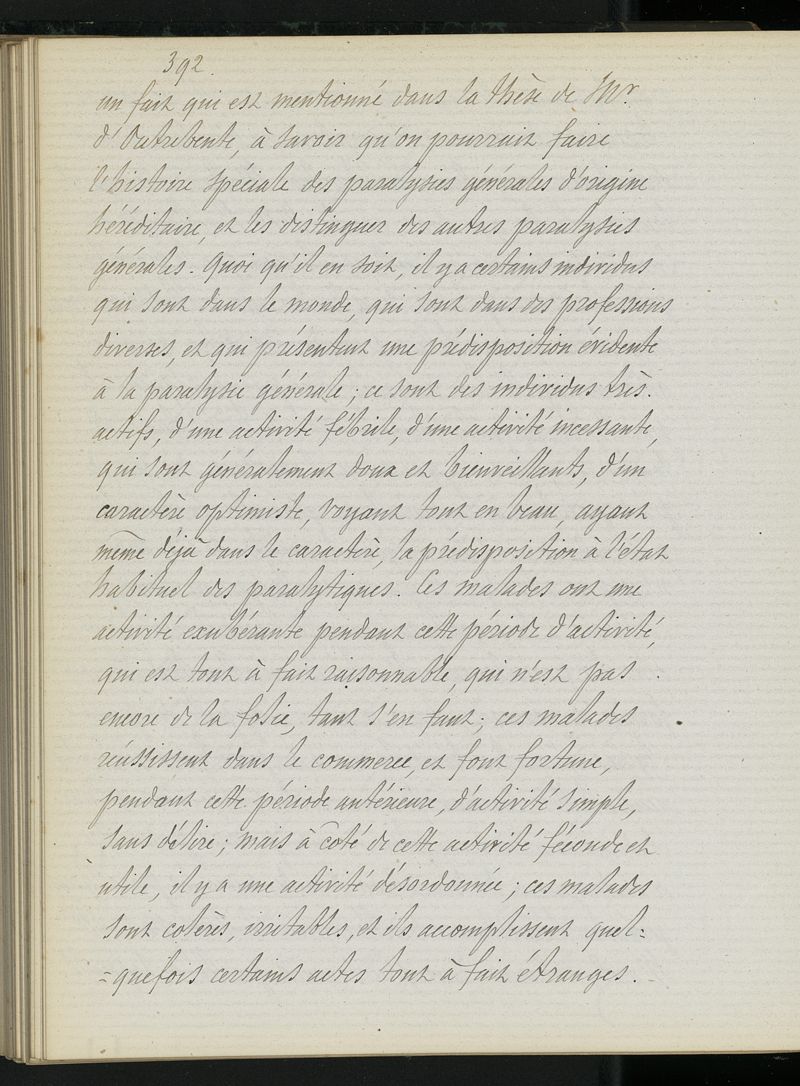 392.
un fait qui est mentionné dans la thèse de Mr.
d'Outrebente, à savoir qu'on pourrait faire
l'histoire spéciale des paralysies générales d'origine
héréditaire, et les distinguer des autres paralysies
générales. Quoi qu'il en soit, il y a certains individus
qui sont dans le monde, qui sont dans des professions
diverses, et qui présentent une prédisposition évidente
à la paralysie générale ; ce sont des individus très.
actifs, d'une activité fébrile, d'une activité incessante,
qui sont généralement doux et bienveillants, d'un
caractère optimiste, voyant tout en beau, ayant
même déjà dans le caractère, la prédisposition à l'état
habituel des paralytiques. Ces malades ont une
activité exubérante pendant cette période d'activité,
qui est tout à fait raisonnable, qui n'est pas
encore de la folie, tant s'en faut ; ces malades
réussissent dans le commerce, et font fortune,
pendant cette période antérieure, d'activité simple,
sans délire ; mais à côté de cette activité féconde et
utile, il y a une activité désordonnée ; ces malades
sont colères, irritables, et ils accomplissent quel=
=quefois certains actes tout à fait étranges.